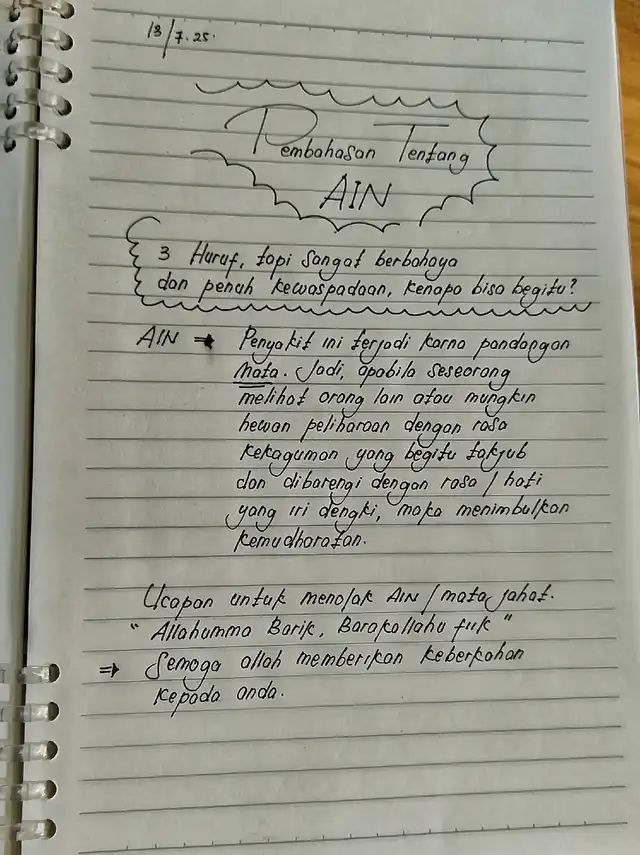 13/7.25.
Pembahasan Tentang
AIN
3 Huruf, tapi sangat berbahaya
dan penuh kewaspadaan, kenapa bisa begitu?
AIN → Penyakit ini terjadi karna pandangan
mata. Jadi, apabila seseorang
melihat orang lain atau mungkin
hewan peliharaan dengan rasa
kekaguman yang begitu takjub
dan dibarengi dengan rasa / hati
yang iri dengki, maka menimbulkan
kemudharatan.
Ucapan untuk menolak AIN / mata jahat.
" Allahumma Barik, Barakallahu fiik "
⇒ Semoga allah memberikan keberkahan
kepada anda.